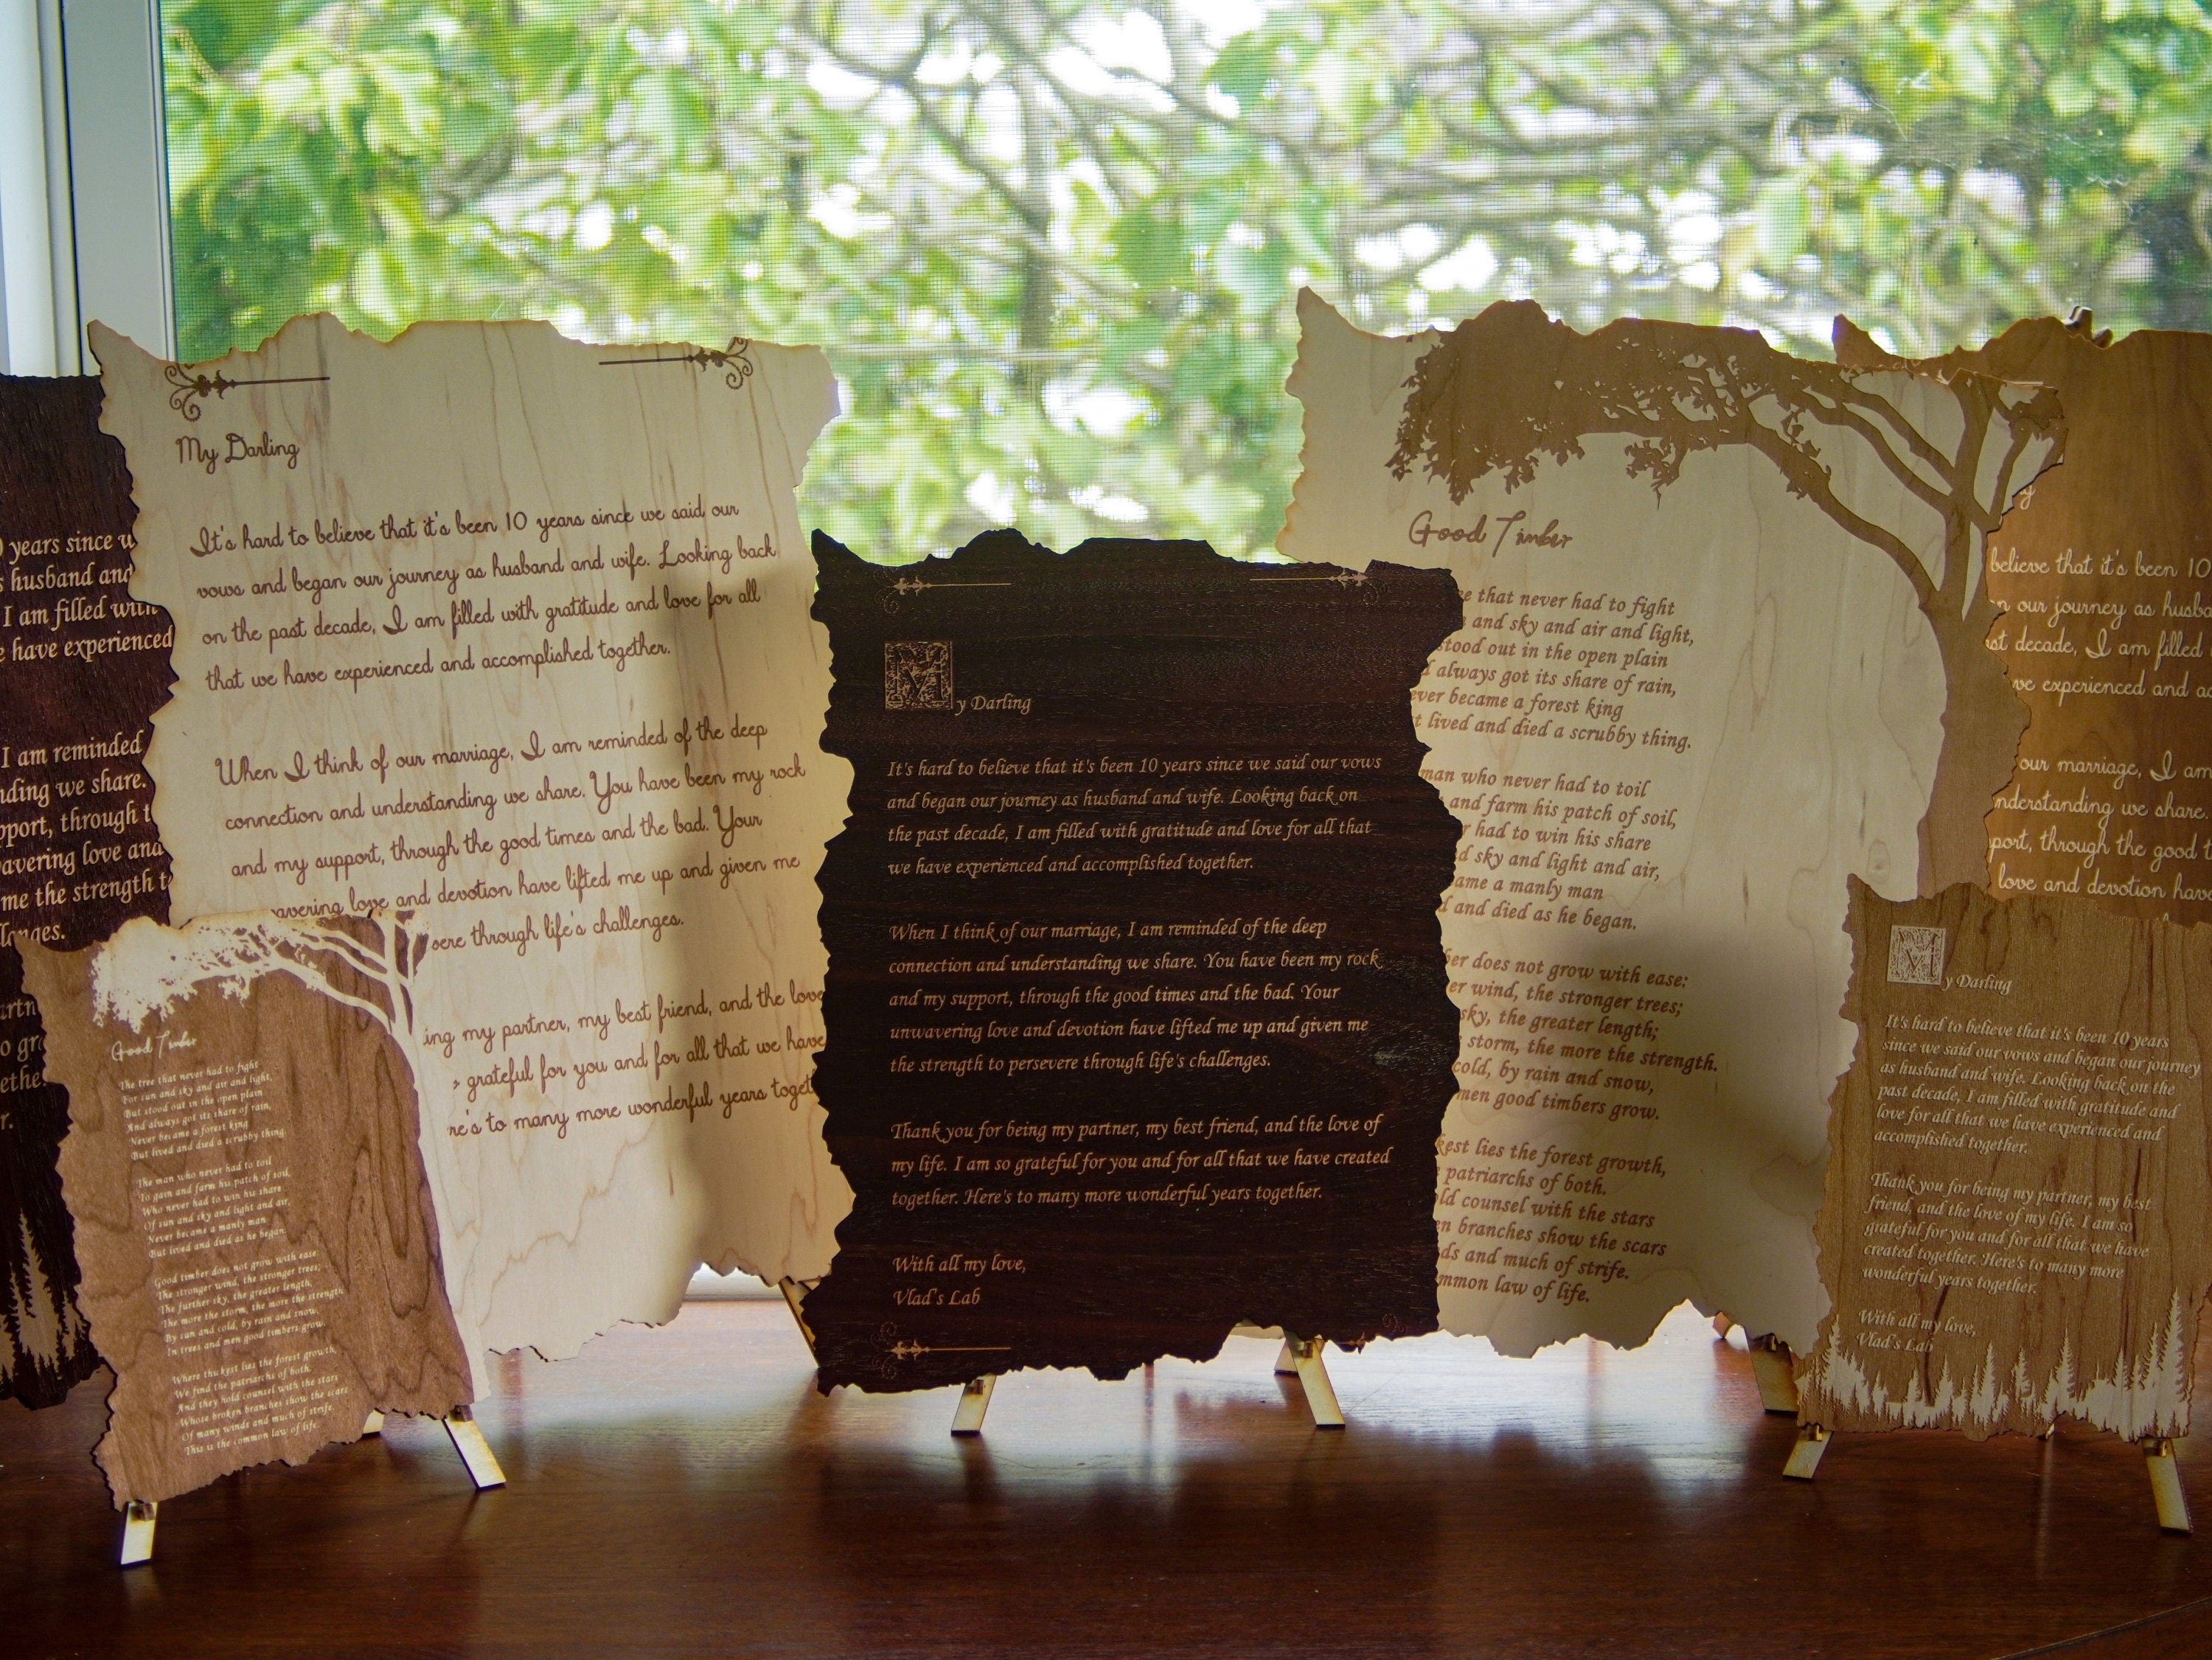 years since w
s husband and
I am filled with
e have experienced
I am reminded
nding we share.
pport, through t
avering love and
me the strength t
llenges.
artn
o gr
ethe
r.
My Darling
It's hard to believe that it's been 10 years since we said our
vows and began our journey as husband and wife. Looking back
on the past decade, I am filled with gratitude and love for all
that we have experienced and accomplished together.
When I think of our marriage, I am reminded of the deep
connection and understanding we share. You have been my rock
and my support, through the good times and the bad. Your
avering love and devotion have lifted me up and given me
severe through life's challenges.
ing my partner, my best friend, and the love
grateful for you and for all that we have
re's to many more wonderful years togeth
Good Timber
The tree that never had to fight
For sun and sky and air and light,
But stood out in the open plain
And always got its share of rain,
Never became a forest king
But lived and died a scrubby thing.
The man who never had to toil
To gain and farm his patch of soil,
Who never had to win his share
Of sun and sky and light and air,
Never became a manly man
But lived and died as he began.
Good timber does not grow with ease:
The stronger wind, the stronger trees;
The further sky, the greater length;
The more the storm, the more the strength.
By sun and cold, by rain and snow,
In trees and men good timbers grow.
Where thickest lies the forest growth,
We find the patriarchs of both.
And they hold counsel with the stars
Whose broken branches show the scars
Of many winds and much of strife.
This is the common law of life.
My Darling
It's hard to believe that it's been 10 years since we said our vows
and began our journey as husband and wife. Looking back on
the past decade, I am filled with gratitude and love for all that
we have experienced and accomplished together.
When I think of our marriage, I am reminded of the deep
connection and understanding we share. You have been my rock
and my support, through the good times and the bad. Your
unwavering love and devotion have lifted me up and given me
the strength to persevere through life's challenges.
Thank you for being my partner, my best friend, and the love of
my life. I am so grateful for you and for all that we have created
together. Here's to many more wonderful years together.
With all my love,
Vlad's Lab
Good Timber
ee that never had to fight
and sky and air and light,
stood out in the open plain
d always got its share of rain,
ever became a forest king
t lived and died a scrubby thing.
man who never had to toil
and farm his patch of soil,
r had to win his share
d sky and light and air,
ame a manly man
d and died as he began.
ber does not grow with ease:
er wind, the stronger trees;
sky, the greater length;
storm, the more the strength.
cold, by rain and snow,
men good timbers grow.
kest lies the forest growth,
patriarchs of both.
old counsel with the stars
en branches show the scars
ds and much of strife.
mmon law of life.
g
believe that it's been 10
n our journey as husba
ast decade, I am filled
ve experienced and ac
our marriage, I am
nderstanding we share.
port, through the good t
love and devotion have
My Darling
It's hard to believe that it's been 10 years
since we said our vows and began our journey
as husband and wife. Looking back on the
past decade, I am filled with gratitude and
love for all that we have experienced and
accomplished together.
Thank you for being my partner, my best
friend, and the love of my life. I am so
grateful for you and for all that we have
created together. Here's to many more
wonderful years together.
With all my love,
Vlad's Lab